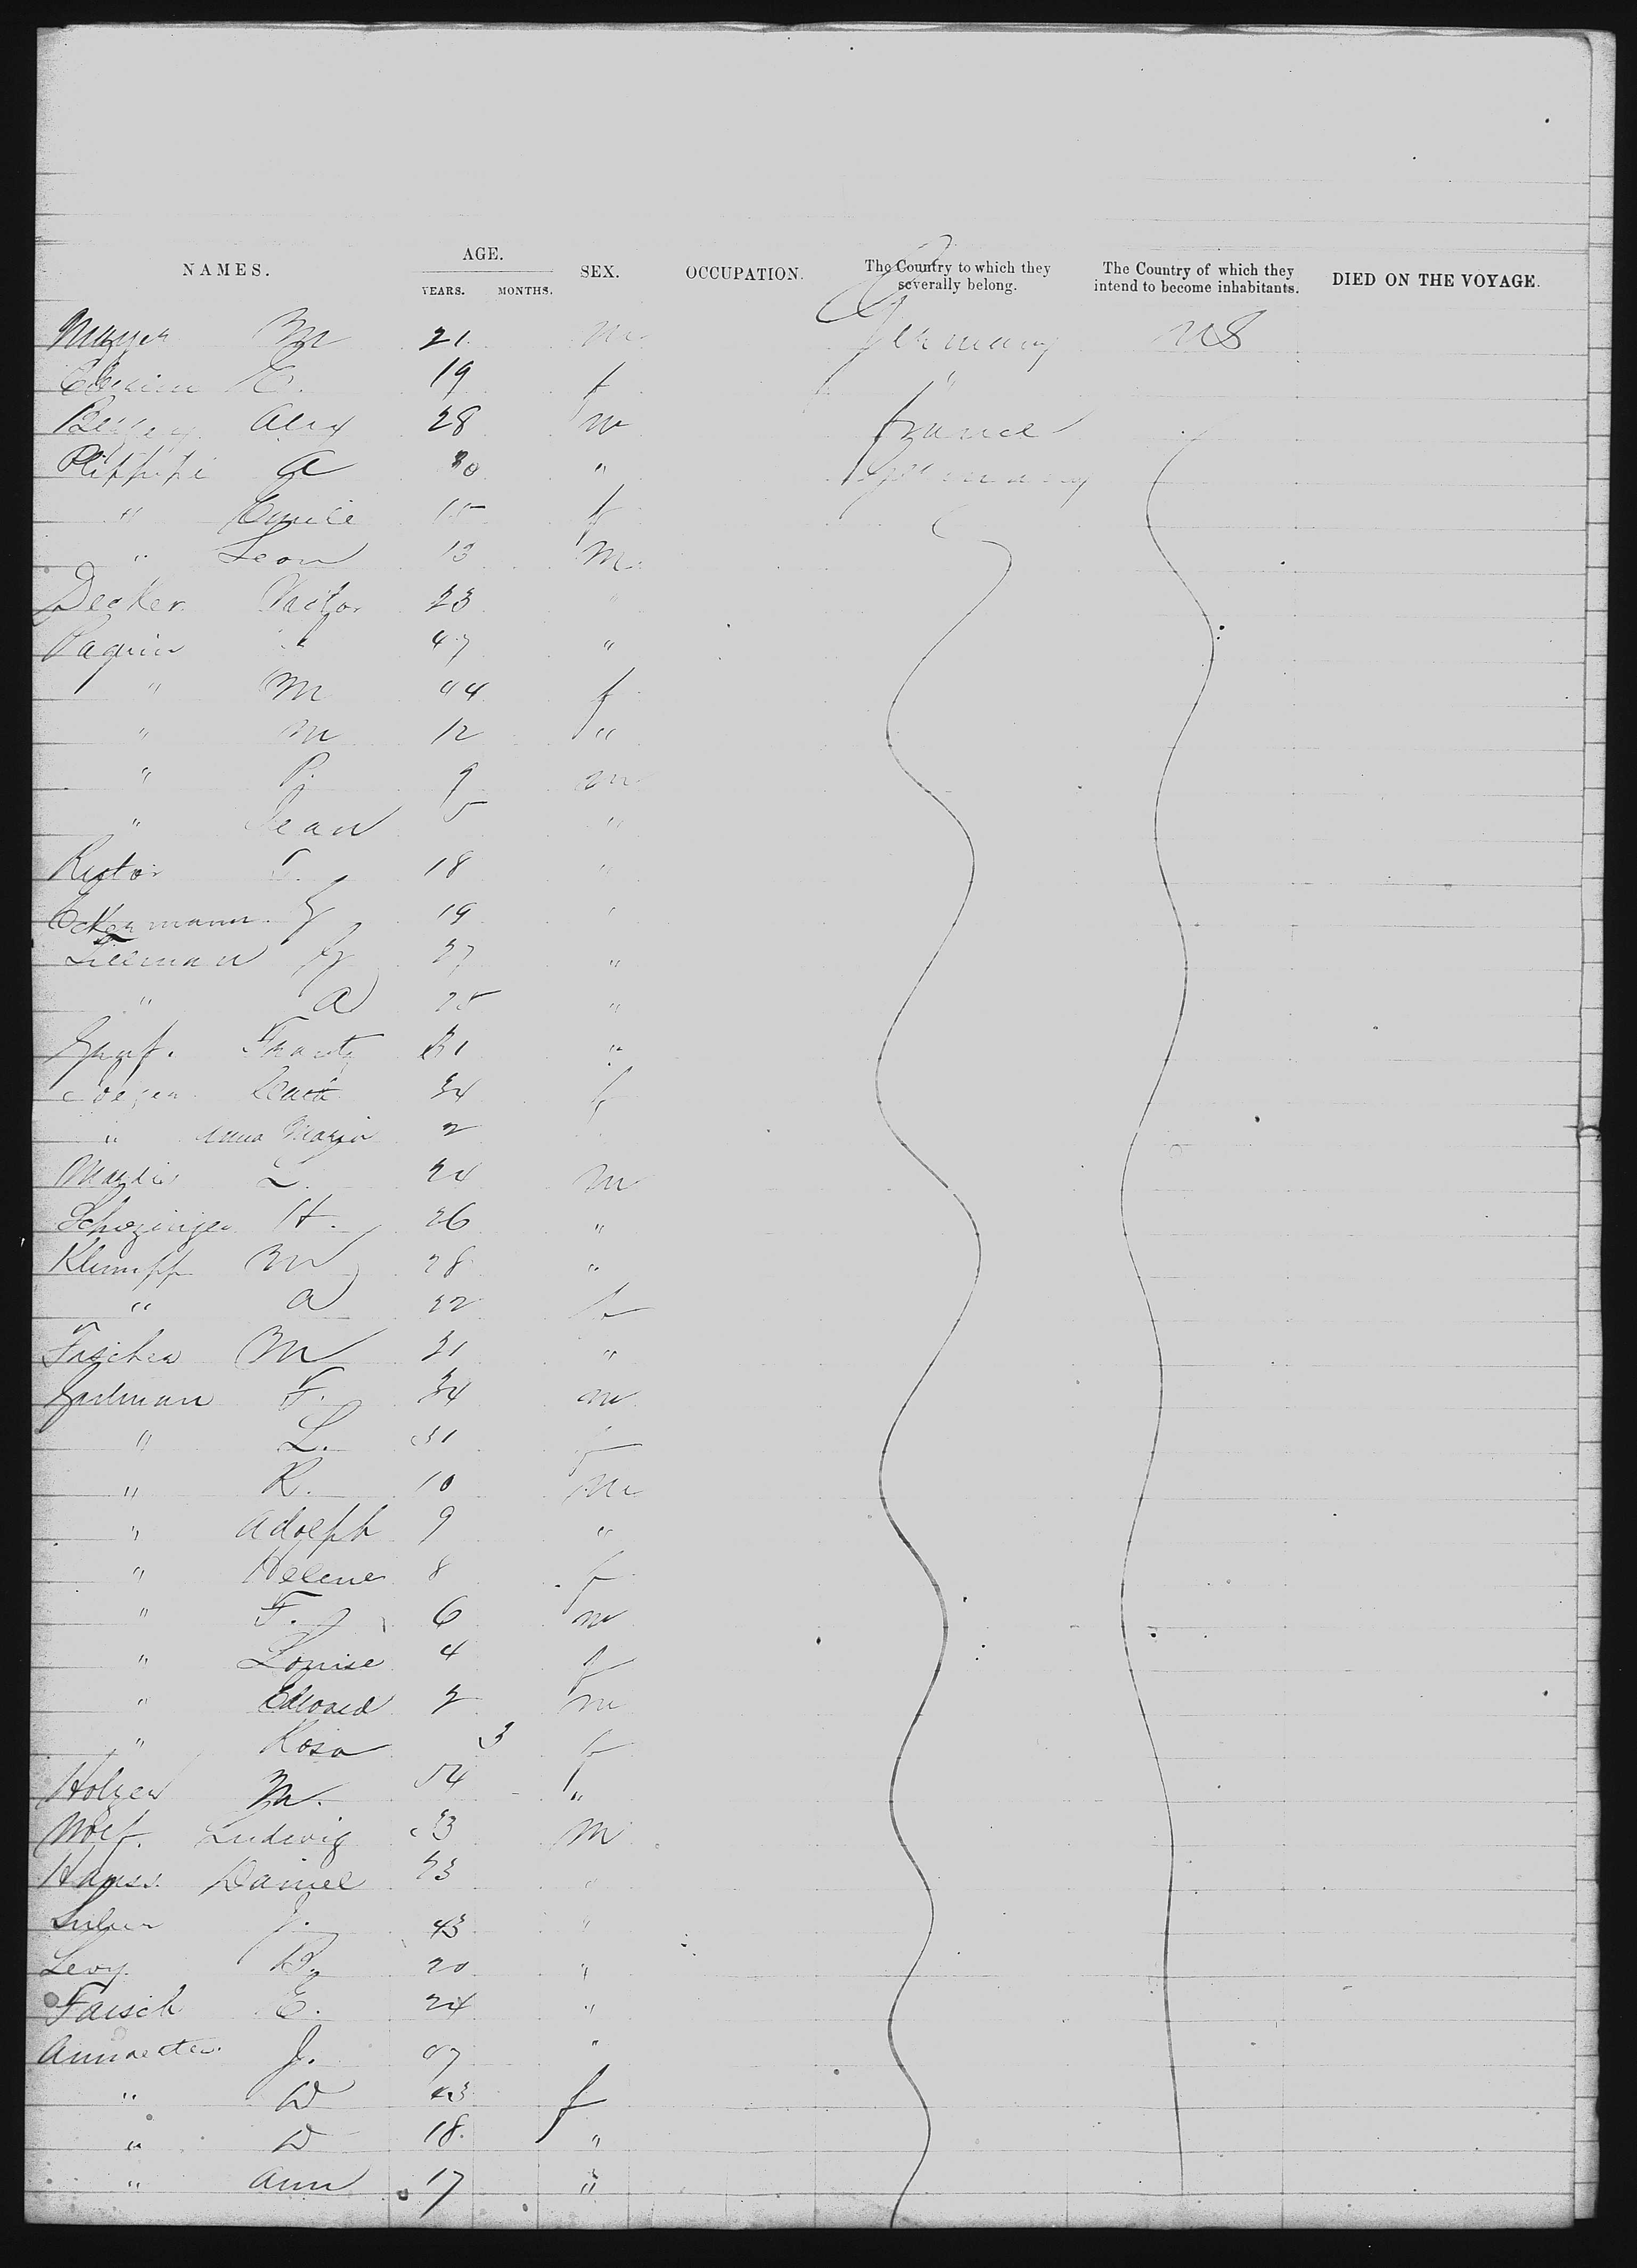 NAMES. AGE. YEARS. MONTHS. SEX. OCCUPATION. The Country to which they severally belong. The Country of which they intend to become inhabitants. DIED ON THE VOYAGE.
Mayer M 21 m Germany US
E. 19 f "
Alex 28 m France
A 30 " Germany
" Emile 15 f
" Leon 13 m
Decker Victor 23 "
Paquin 47 "
" M 44 f
" M 12 "
" P. 9 m
" Jean 5 "
Rector 18 "
Ockermann G 19 "
Tileman G 27 "
" A 25 "
Graf. Frantz 31 "
34 f
" Anna Maria 2
L. 24 m
Schozinger H. 26 "
Klumpp M 28 "
" A 22 f
Fischer M 21 "
F. 34 m
" L. 31 f
" R. 10 m
" Adolph 9 "
" Helene 8 f
" F. 6 m
" Louise 4 f
" Edward 2 m
" Rosa 3 f
Holzer M. 54 "
Wolf. Ludwig 33 m
Hauss. Daniel 23 "
J. 43 "
Levy B. 20 "
Faisch E. 24 "
J. 47 "
" D 43 f
" D 18 "
" Ann 17 "